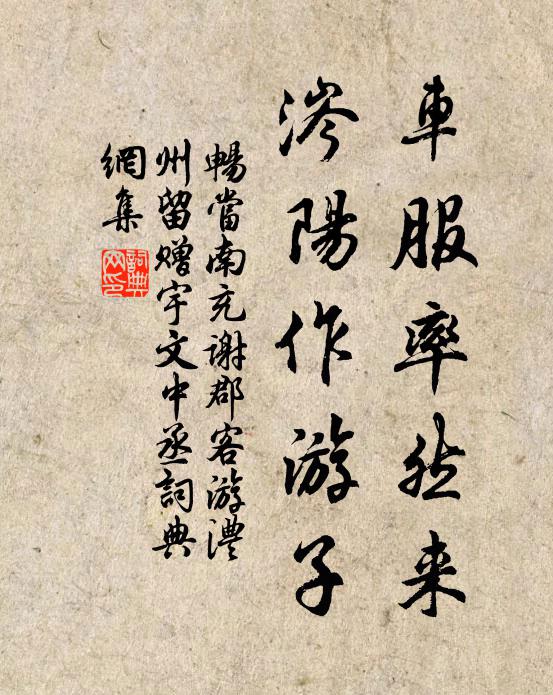 車服率然来
涔陽作游子
暢當南充謝郡客游澧
州留贈宇文中丞詞典
網集
詞典
网印